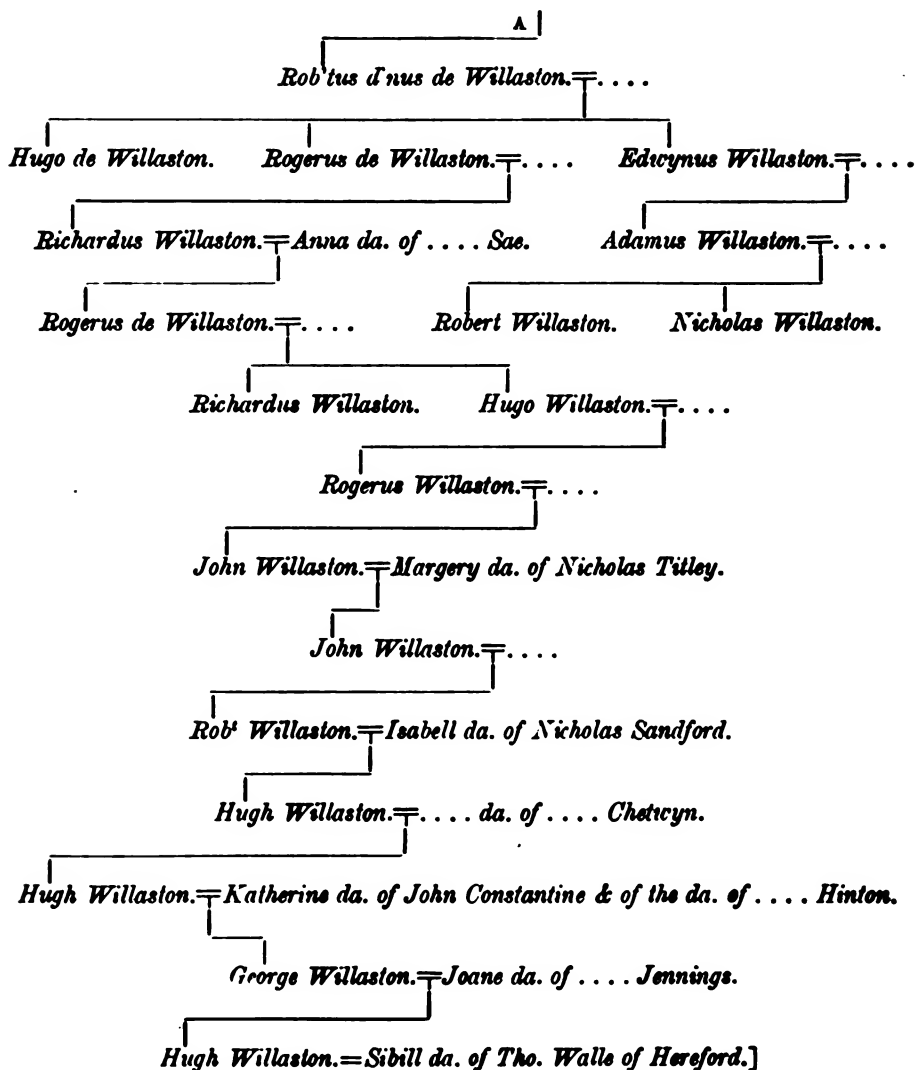 A
Rob'tus d'nus de Willaston.=. . . .
Hugo de Willaston. Rogerus de Willaston.=. . . . Edwynus Willaston.=. . . .
Richardus Willaston.=Anna da. of . . . . Sae. Adamus Willaston.=. . . .
Rogerus de Willaston.=. . . . Robert Willaston. Nicholas Willaston.
Richardus Willaston. Hugo Willaston.=. . . .
Rogerus Willaston.=. . . .
John Willaston.=Margery da. of Nicholas Titley.
John Willaston.=. . . .
Robᵗ Willaston.=Isabell da. of Nicholas Sandford.
Hugh Willaston.=. . . . da. of . . . . Chetwyn.
Hugh Willaston.=Katherine da. of John Constantine & of the da. of . . . . Hinton.
George Willaston.=Joane da. of . . . . Jennings.
Hugh Willaston.=Sibill da. of Tho. Walle of Hereford.]